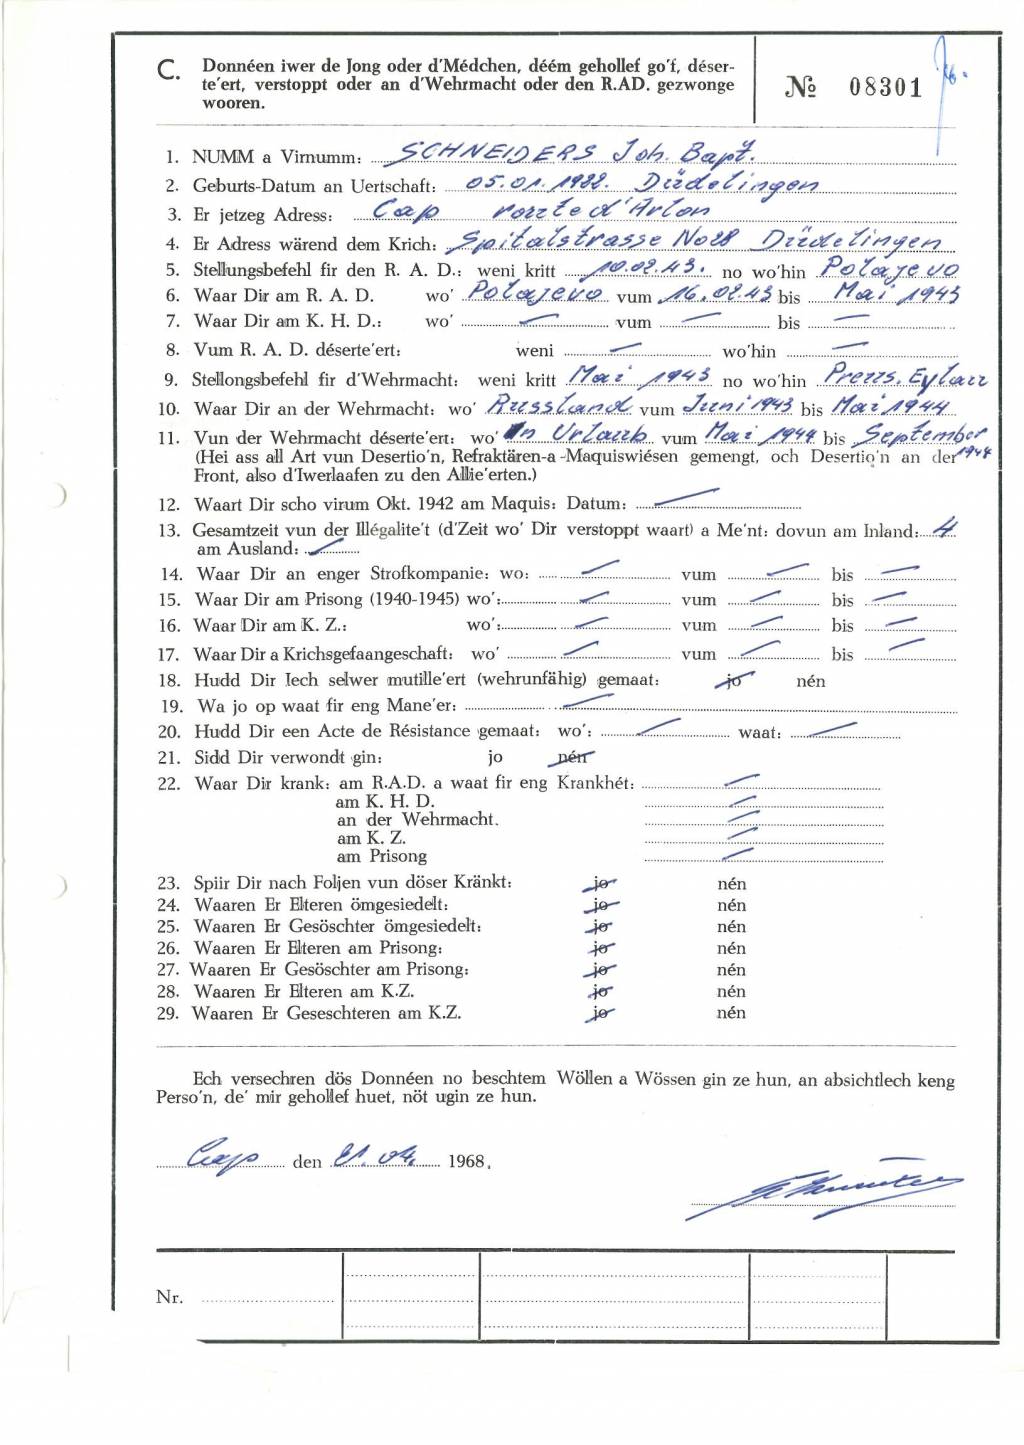 C. Donnéen iwer de Jong oder d'Médchen, déém gehollef go'f, déser-
te'ert, verstoppt oder an d'Wehrmacht oder den R.AD. gezwonge
wooren.
№ 08301
1. NUMM a Virnumm: SCHNEIDERS Joh. Bapt.
2. Geburts-Datum an Uertschaft: 05.01.1922. Düdelingen
3. Er jetzeg Adress: Cap routе d'Arlon
4. Er Adress wärend dem Krich: Spitalstrasse No28 Düdelingen
5. Stellungsbefehl fir den R. A. D.: weni kritt 10.02.43. no wo'hin Polajevo
6. Waar Dir am R. A. D. wo' Polajevo vum 16.02.43 bis Mai 1943
7. Waar Dir am K. H. D.: wo' — vum — bis —
8. Vum R. A. D. déserte'ert: weni — wo'hin —
9. Stellongsbefehl fir d'Wehrmacht: weni kritt Mai 1943 no wo'hin Preuss. Eylau
10. Waar Dir an der Wehrmacht: wo' Russland vum Juni 1943 bis Mai 1944
11. Vun der Wehrmacht déserte'ert: wo' In Urlaub vum Mai 1944 bis September 1944
(Hei ass all Art vun Desertio'n, Refraktären-a-Maquiswiésen gemengt, och Desertio'n an der
Front, also d'Iwerlaafen zu den Allie'erten.)
12. Waart Dir scho virum Okt. 1942 am Maquis: Datum: —
13. Gesamtzeit vun der Illégalite't (d'Zeit wo' Dir verstoppt waart) a Me'nt: dovun am Inland: 4
am Ausland: —
14. Waar Dir an enger Strofkompanie: wo: — vum — bis —
15. Waar Dir am Prisong (1940-1945) wo': — vum — bis —
16. Waar Dir am K. Z.: wo': — vum — bis —
17. Waar Dir a Krichsgefaangeschaft: wo' — vum — bis —
18. Hudd Dir Iech selwer mutille'ert (wehrunfähig) gemaat: jo nén
19. Wa jo op waat fir eng Mane'er: —
20. Hudd Dir een Acte de Résistance gemaat: wo': — waat: —
21. Sidd Dir verwondt gin: jo nén
22. Waar Dir krank: am R.A.D. a waat fir eng Krankhét: —
am K. H. D. —
an der Wehrmacht. —
am K. Z. —
am Prisong —
23. Spiir Dir nach Foljen vun döser Kränkt: jo nén
24. Waaren Er Elteren ömgesiedelt: jo nén
25. Waaren Er Gesöschter ömgesiedelt: jo nén
26. Waaren Er Elteren am Prisong: jo nén
27. Waaren Er Gesöschter am Prisong: jo nén
28. Waaren Er Elteren am K.Z. jo nén
29. Waaren Er Geseschteren am K.Z. jo nén
Ech versechren dös Donnéen no beschtem Wöllen a Wössen gin ze hun, an absichtlech keng
Perso'n, de' mir gehollef huet, nöt ugin ze hun.
Cap den 21.04. 1968.
Nr.